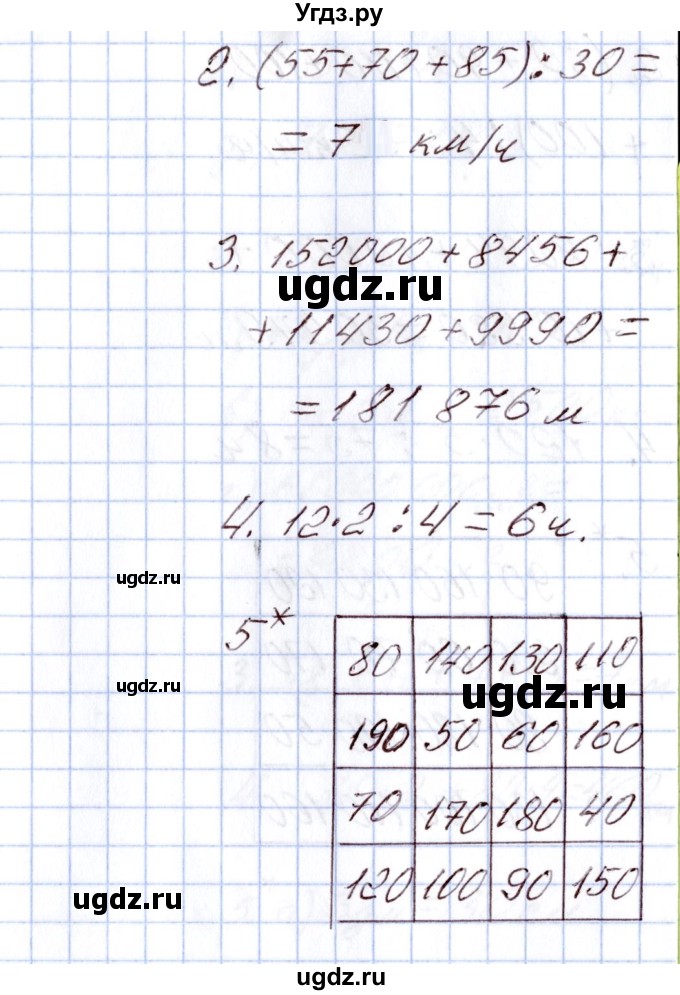 Угдз.ру
2. (55+70+85):30=
=7 км/ч
3. 152000+8456+
ugdz.ru
+11430+9990=
=181 876 м
4. 12·2:4=6ч.
ugdz.ru
5*
80 140 130 110
ugdz.ru
ugdz.ru
190 50 60 160
70 170 180 40
120 100 90 150
ugdz.ru
ugdz.ru